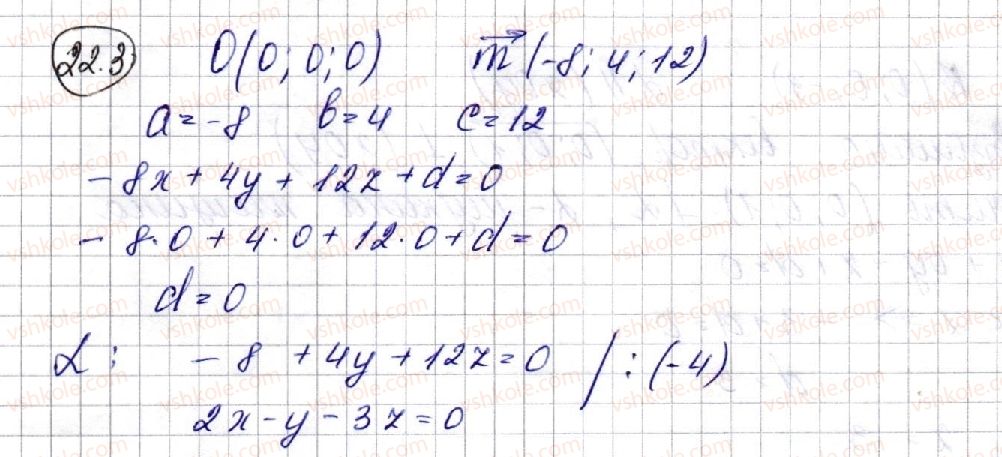 22.3 O(0; 0; 0) m⃗ (-8; 4; 12)
a = -8 b = 4 c = 12
-8x + 4y + 12z + d = 0
-8·0 + 4·0 + 12·0 + d = 0
d = 0
α: -8 + 4y + 12z = 0 / : (-4)
2x - y - 3z = 0